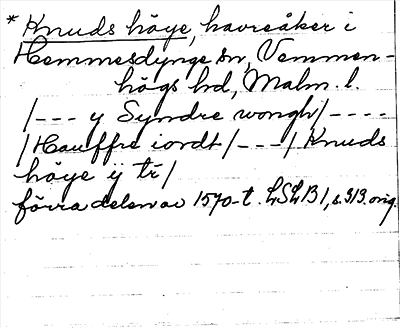 * Knuds höye, havreåker i
Hemmesdynge sn, Vemmen-
högs hd, Malm. l.
/--- y Syndre wongh/----
/Hauffre iordt/---/ Knuds
höye ÿ tr/
förra delen av 1570-t. LSLB1, s. 313. orig.